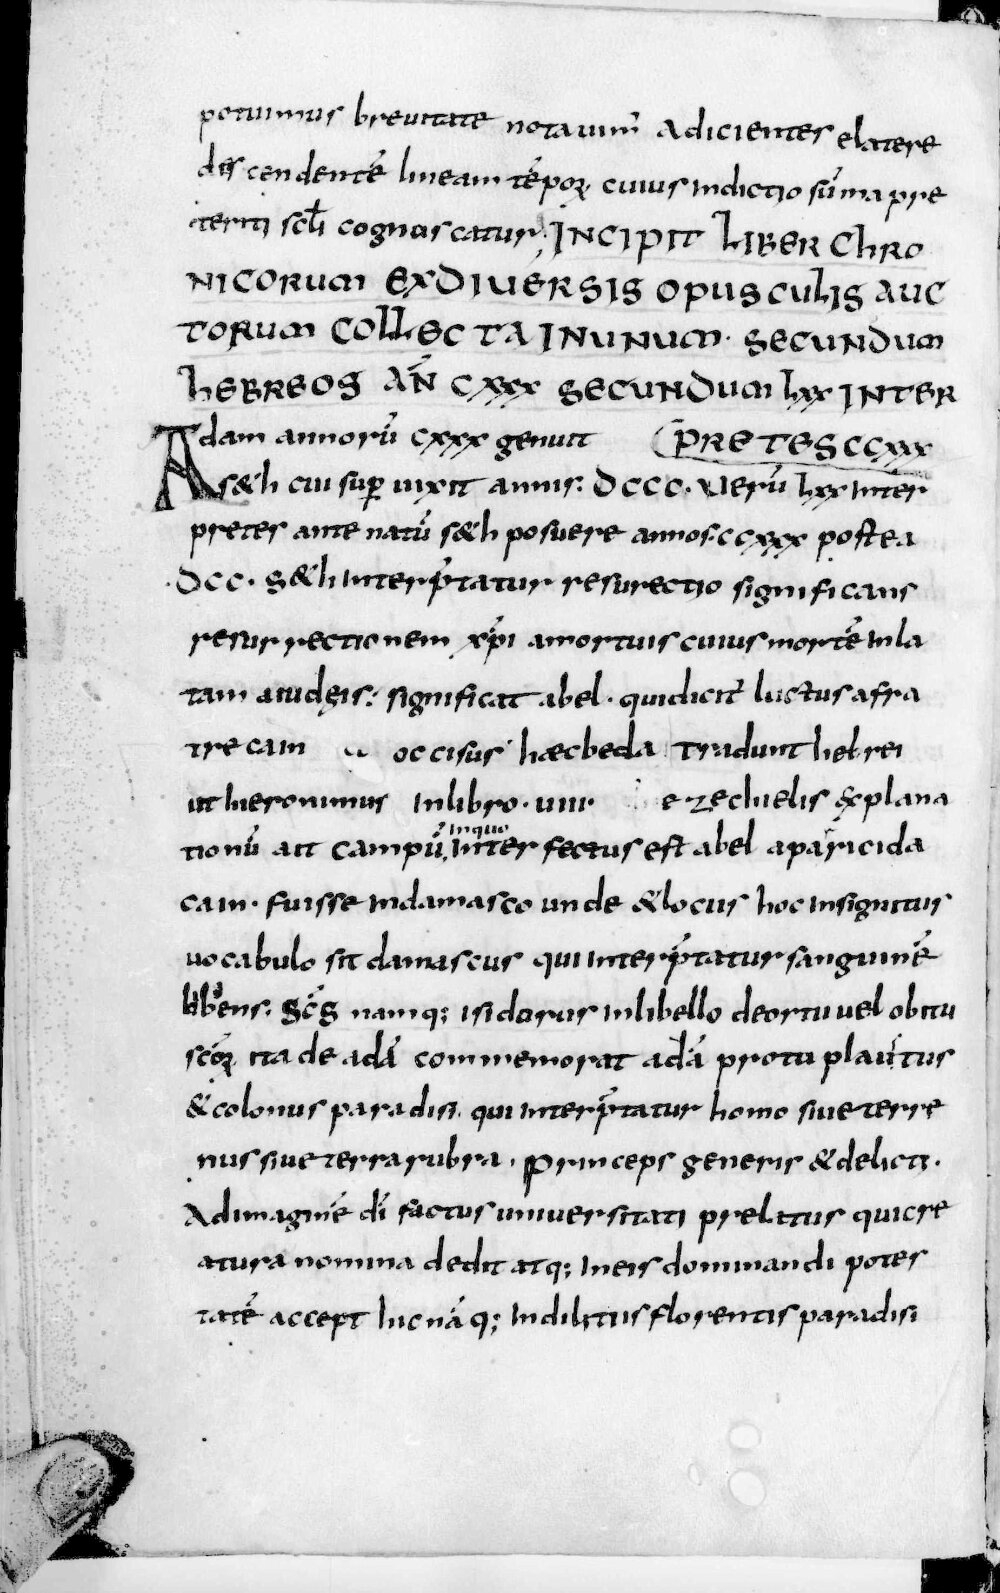 potuimus breuitate notauim̄ adicientes elatere
discendentē lineam tēporꝝ cuius indictio sūma pre
teriti sc̄li cognoscatur. INCIPIT LIBER ChRO
NICORUM EXDIUERSIS OPUSCULIS AUC
TORUM COLLECTA INUNUM· SECUNDUM
hEBREOS AN̄ CXXX SECUNDUM LXX INTER
Adam annorū cxxx genuit PRETES CCXXX
s&h cui suꝑ uixit annis: DCCC· uerū lxx inter
pretes ante natū s&h posuere annos: ccxxx postea
DCC· s&h interp̄tatur resurectio significans
resurrectionem xp̄i amortuis cuius mortē inla
tam aiudęis: significat abel· quidicit̄ luctus afra
tre cain occisus hæcbeda tradunt hebrei
ut hieronimus inlibro· uiii· ezechielis explana
tionū ait campū, inquo interfectus est abel aparicida
cain· fuisse indamasco unde &locus hoc insignitus
uocabulo sit damascus qui interp̄tatur sanguinē
bibens: sc̄s namq; isidorus inlibello deortu uel obitu
sc̄orꝝ ita de adā commemorat adā protu plaustus
&colonus paradisi. qui interp̄tatur homo siue terre
nus siue terra rubra· princeps generis &delicti·
Adimaginē dī factus uniuersitati prelatus quicre
atura nomina dedit atq; ineis dominandi potes
tatē accept hic nā q; indilitiis florentis paradisi